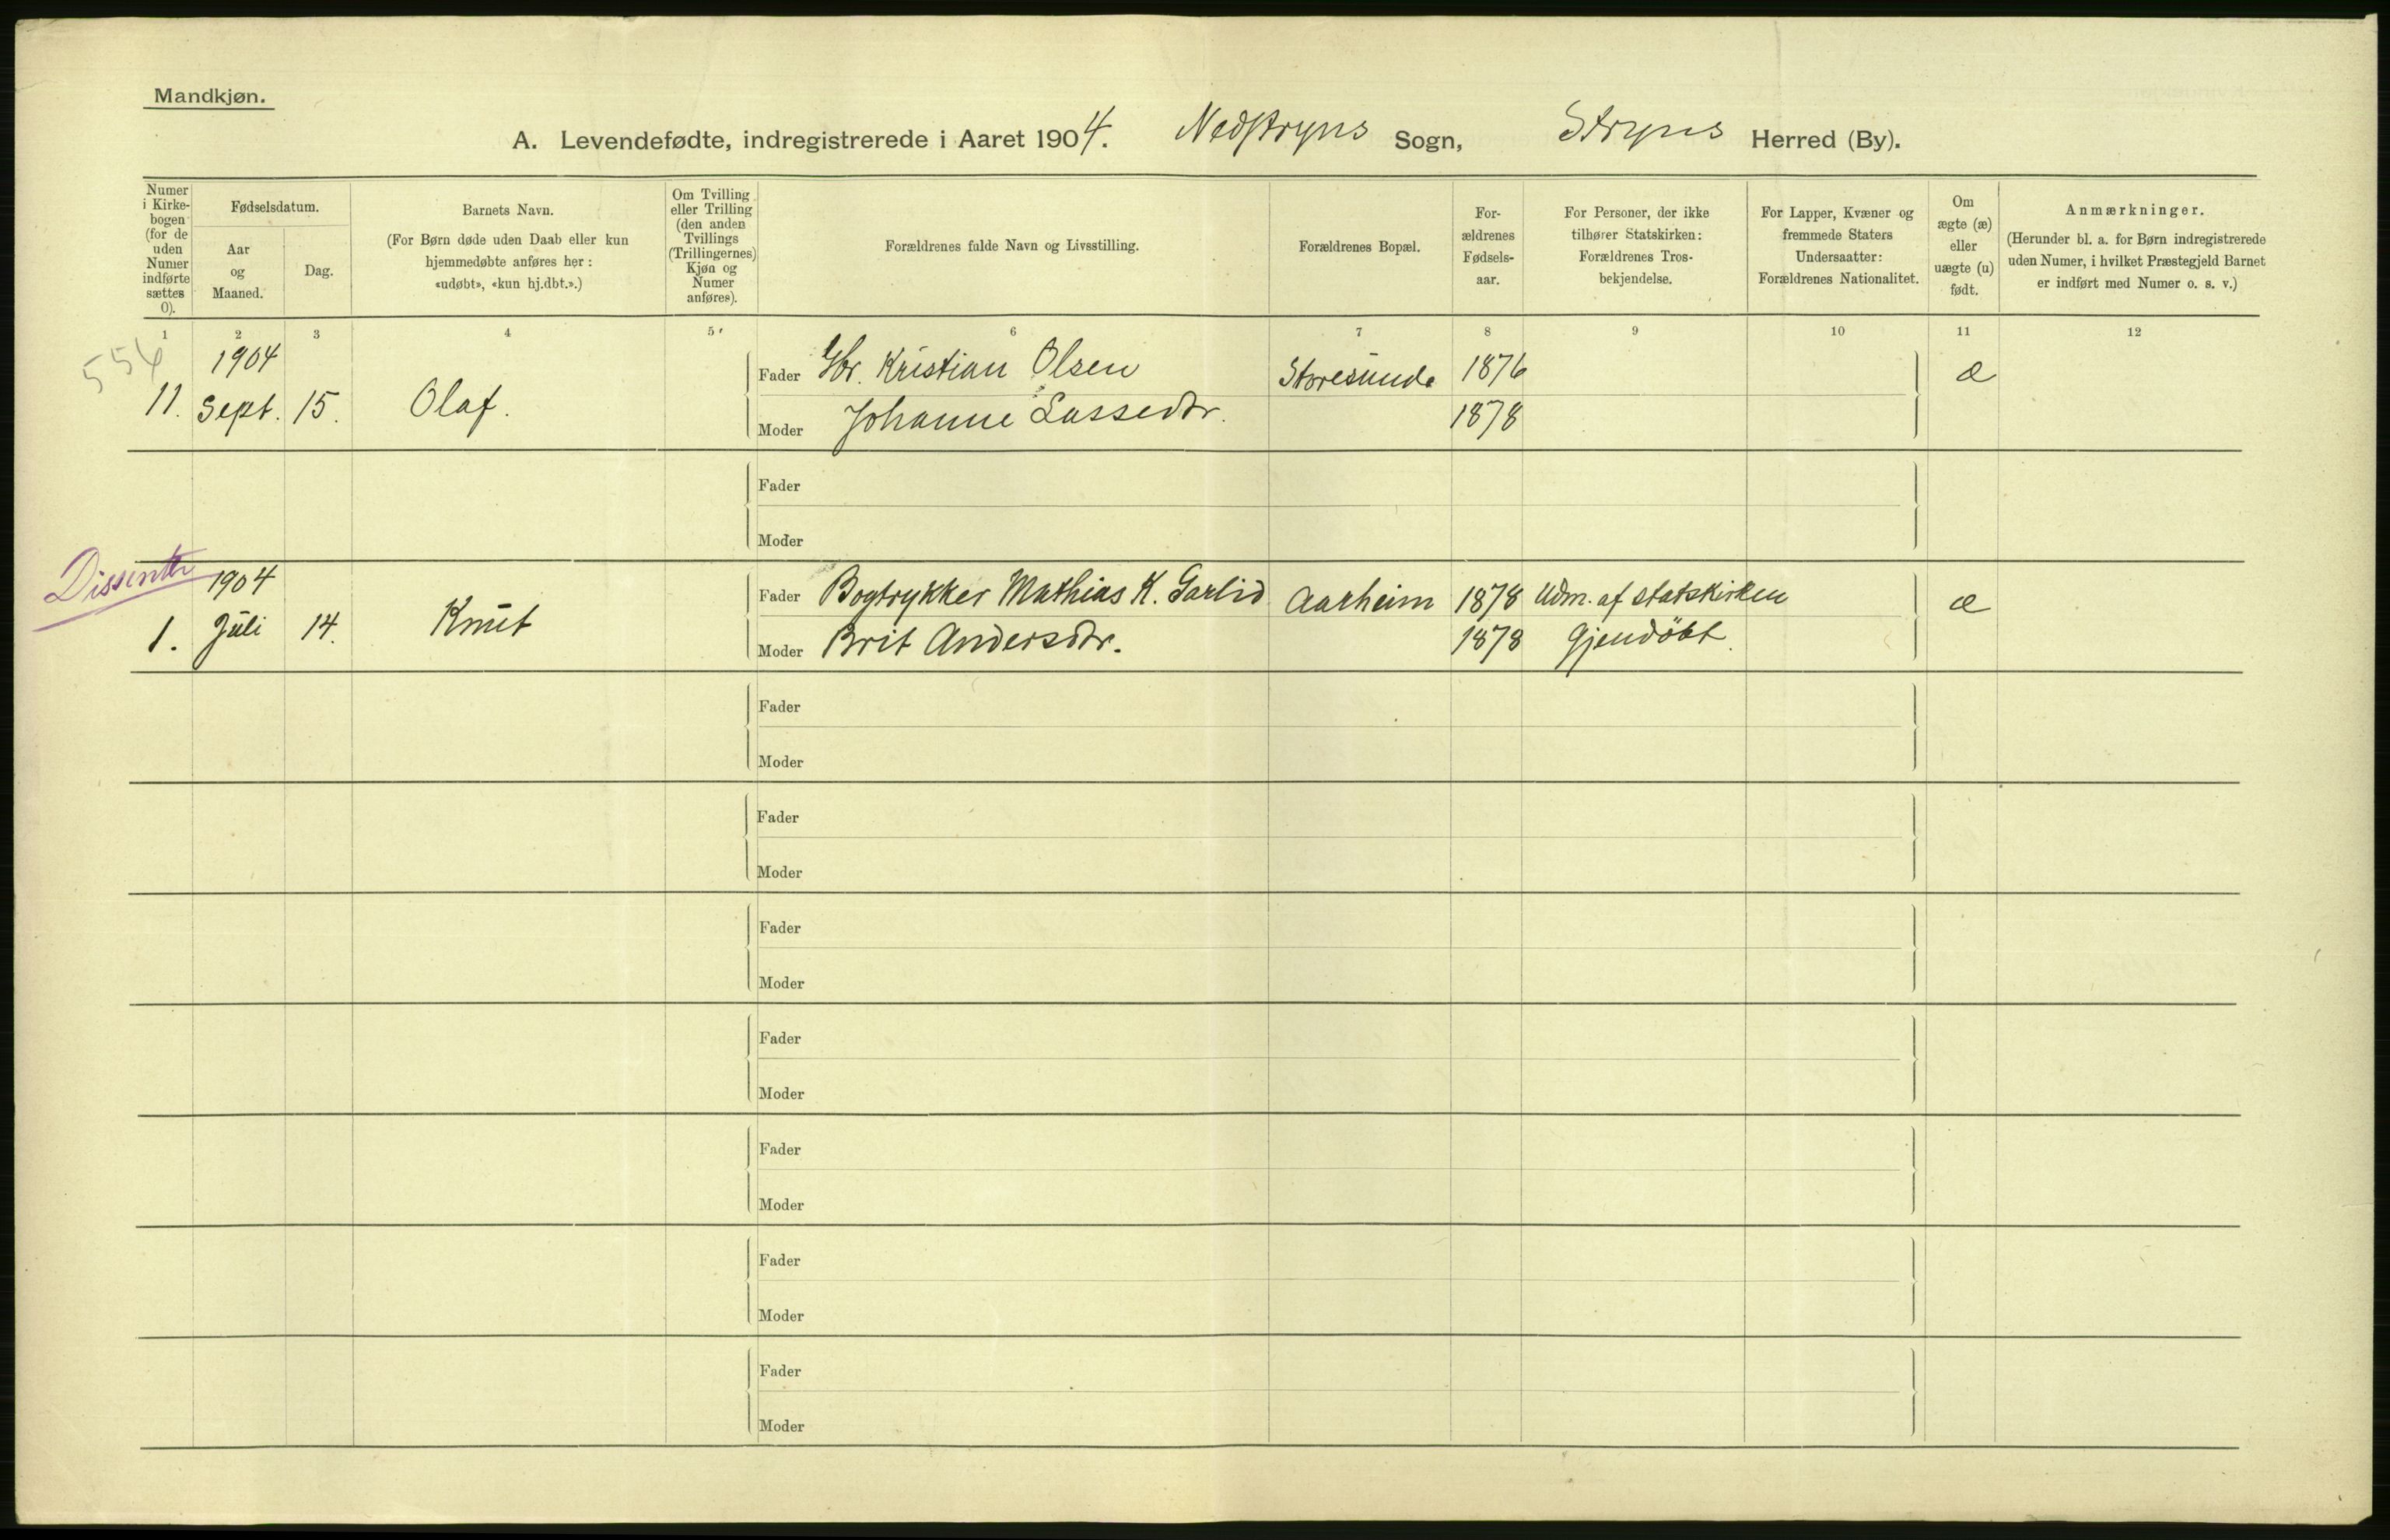 Mandkjøn.
A. Levendefødte, indregistrerede i Aaret 1904. Nedstryns Sogn, Stryns Herred (By).
Numer i Kirkebogen (for de uden Numer indførte sættes 0).
Fødselsdatum.
Aar og Maaned.
Dag.
Barnets Navn.
(For Børn døde uden Daab eller kun
hjemmedøbte anføres her:
«udøbt», «kun hj.dbt.».)
Om Tvilling
eller Trilling
(den anden
Tvillings
(Trillingernes)
Kjøn og
Numer
anføres).
Forældrenes fulde Navn og Livsstilling.
Forældrenes Bopæl.
For-
ældrenes
Fødsels-
aar.
For Personer, der ikke
tilhører Statskirken:
Forældrenes Tros-
bekjendelse.
For Lapper, Kvæner og
fremmede Staters
Undersaatter:
Forældrenes Nationalitet.
Om
ægte (æ)
eller
uægte (u)
født.
Anmærkninger.
(Herunder bl. a. for Børn indregistrerede
uden Numer, i hvilket Præstegjeld Barnet
er indført med Numer o. s. v.)
1 2 3 4 5 6 7 8 9 10 11 12
554
1904 Fader Gbr. Kristian Olsen Storesunde 1876 æ
11. Sept. 15. Olaf. Moder Johanne Lassedtr. 1878
Fader
Moder
Dissenter
1904 Fader Bogtrykker Mathias K. Garlid Aarheim 1878 Udm. af statskirken æ
1. Juli 14. Knut Moder Brit Andersdtr. 1878 Gjendöbt.
Fader
Moder
Fader
Moder
Fader
Moder
Fader
Moder
Fader
Moder
Fader
Moder
Fader
Moder